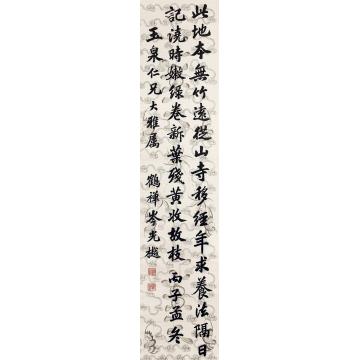 此地本無竹遠從山寺移經年求養法隔日
記澆時嫩綠卷新葉殘黃收故枝 丙子孟冬
玉泉仁兄大雅屬 鶴禪岑光樾